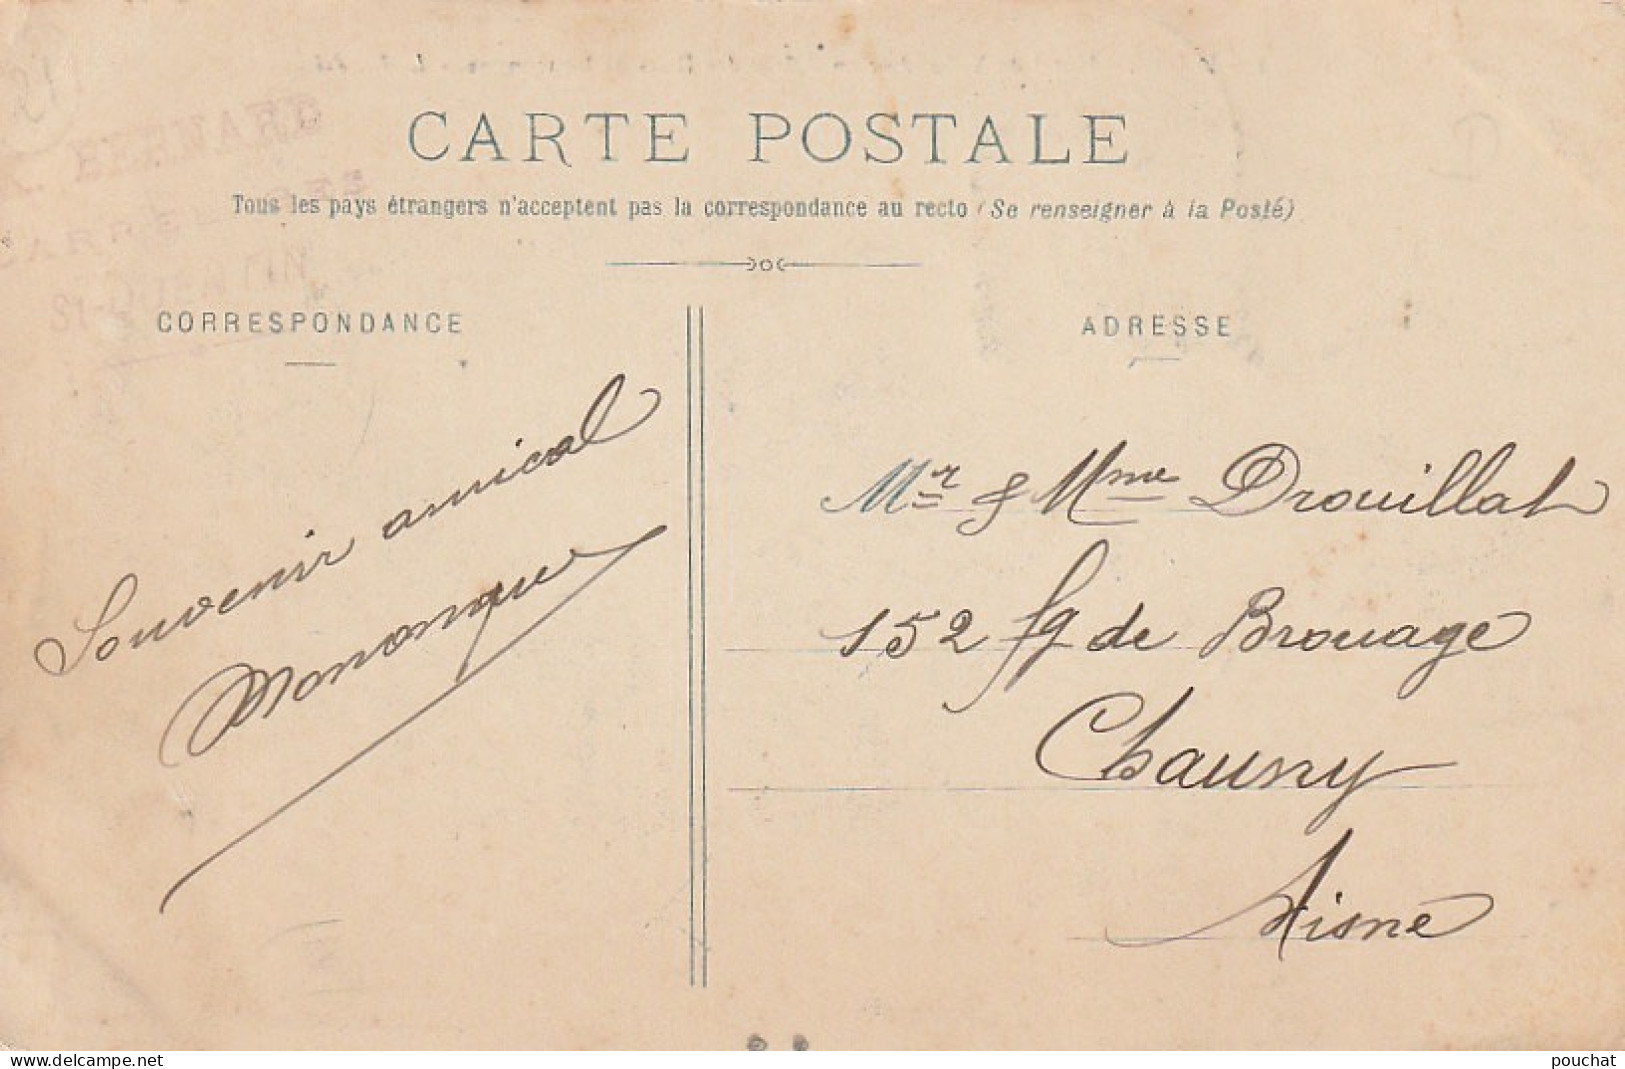 CARTE POSTALE
Tous les pays étrangers n'acceptent pas la correspondance au recto (Se renseigner à la Poste)
CORRESPONDANCE
ADRESSE
Souvenir amical
Mr & Mme Drouillat
152 fg de Brouage
Chauny
Aisne
St-QUENTIN
www.delcampe.net
pouchat